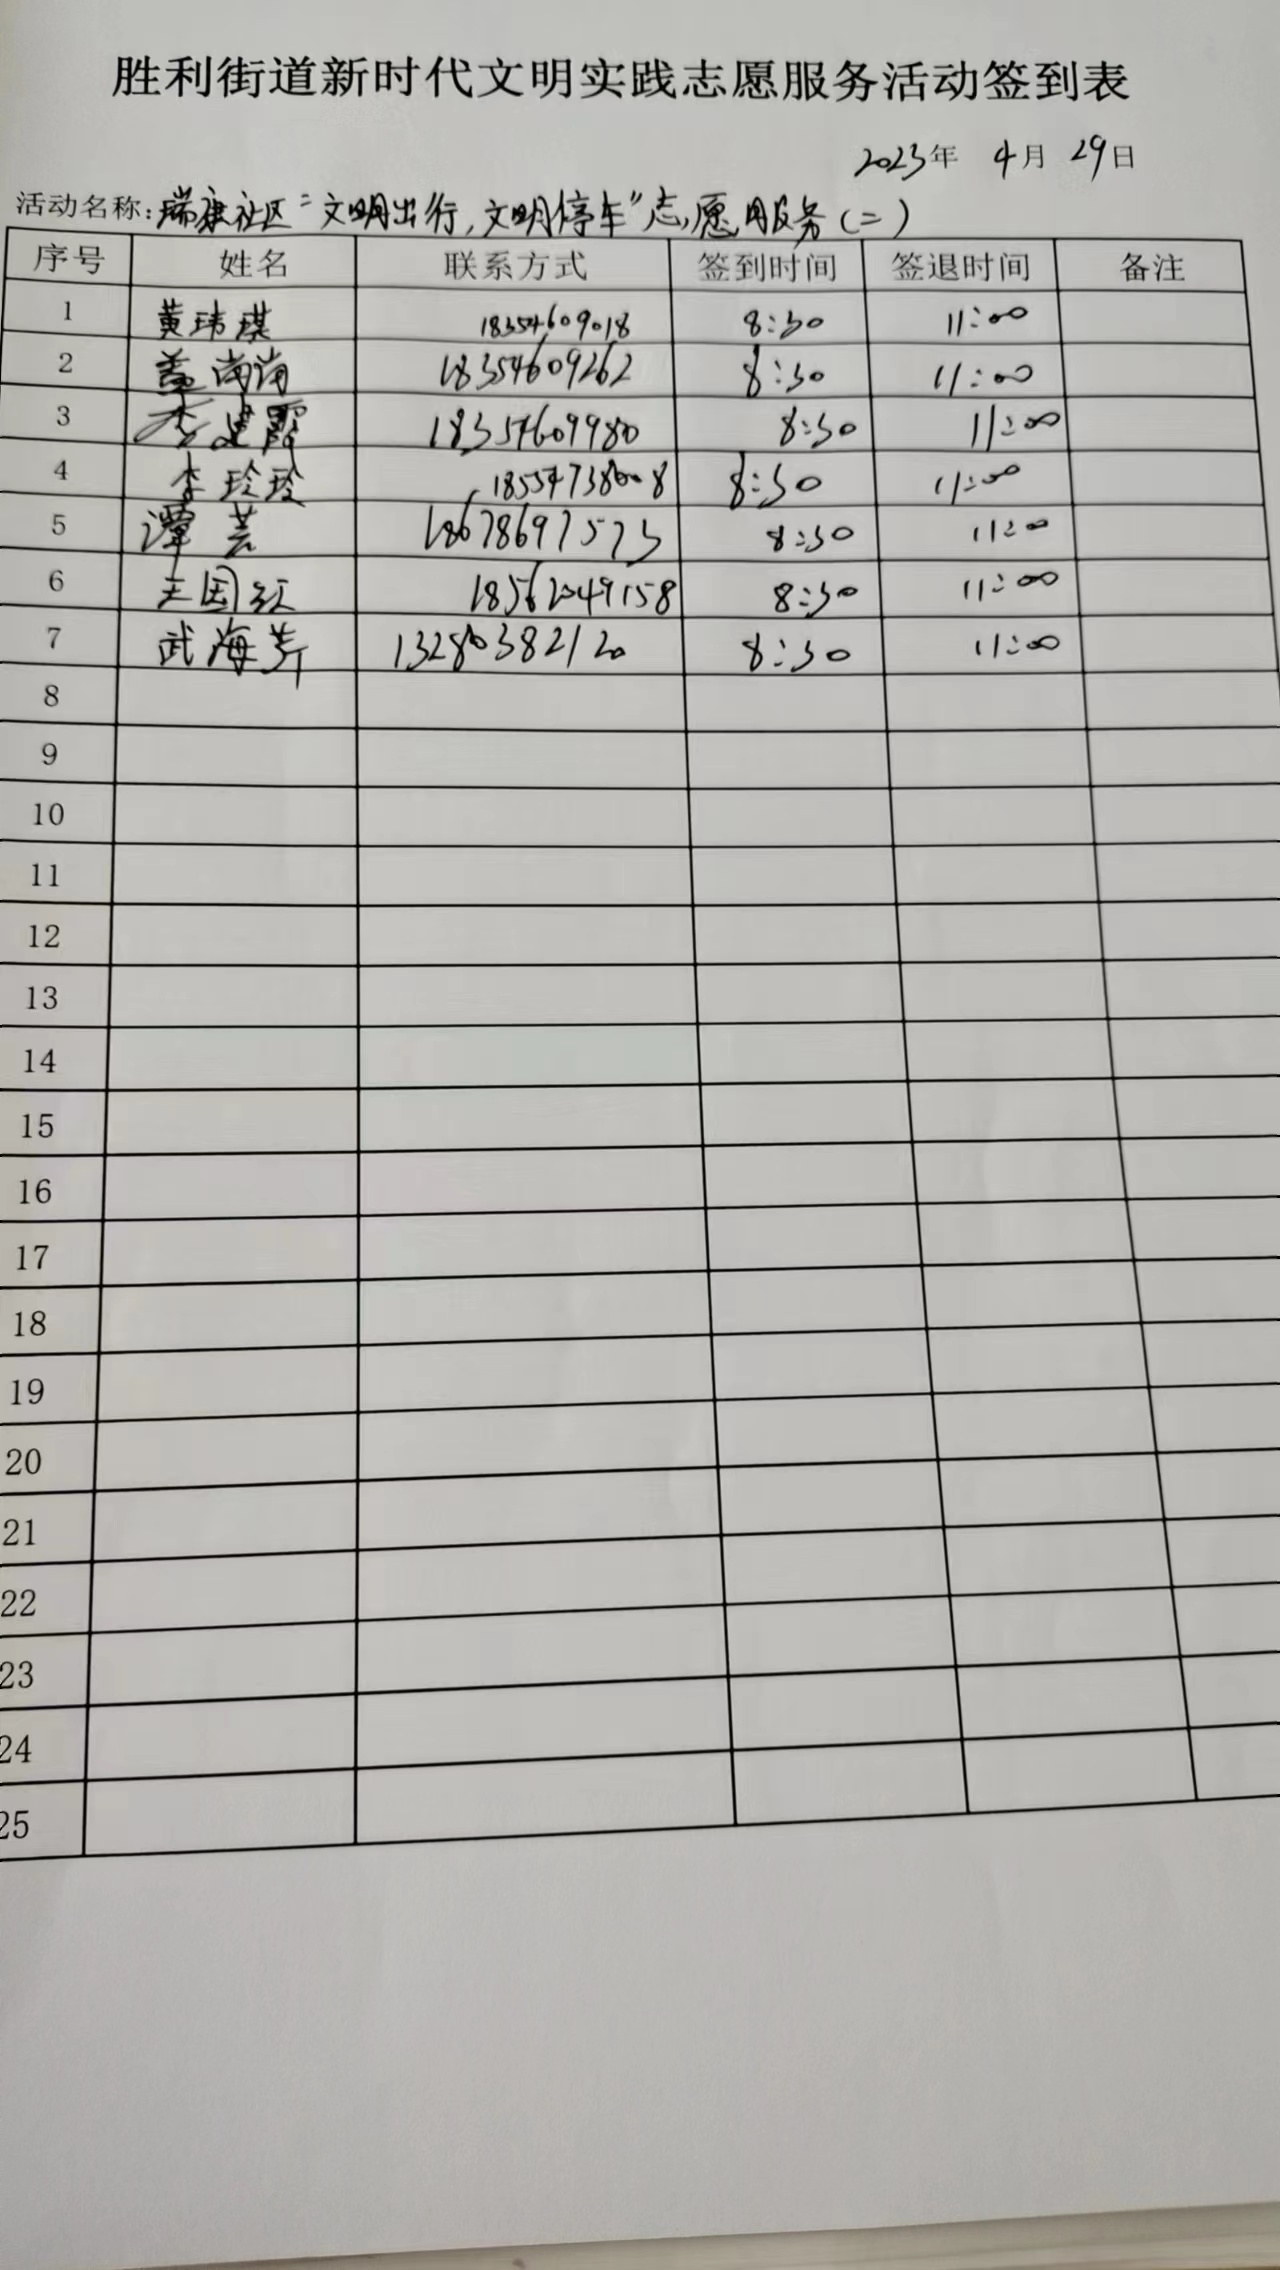 胜利街道新时代文明实践志愿服务活动签到表
2023年 4月 29日
活动名称：瑞康社区“文明出行，文明停车”志愿服务（二）
序号 姓名 联系方式 签到时间 签退时间 备注
1 黄玮琪 18354609018 8:30 11:00
2 盖尚尚 18354609262 8:30 11:00
3 李建霞 18354609980 8:30 11:00
4 李玲玲 18554738008 8:30 11:00
5 谭芸 18678697573 8:30 11:00
6 王国红 18562049158 8:30 11:00
7 武海芳 13280382120 8:30 11:00
8
9
10
11
12
13
14
15
16
17
18
19
20
21
22
23
24
25